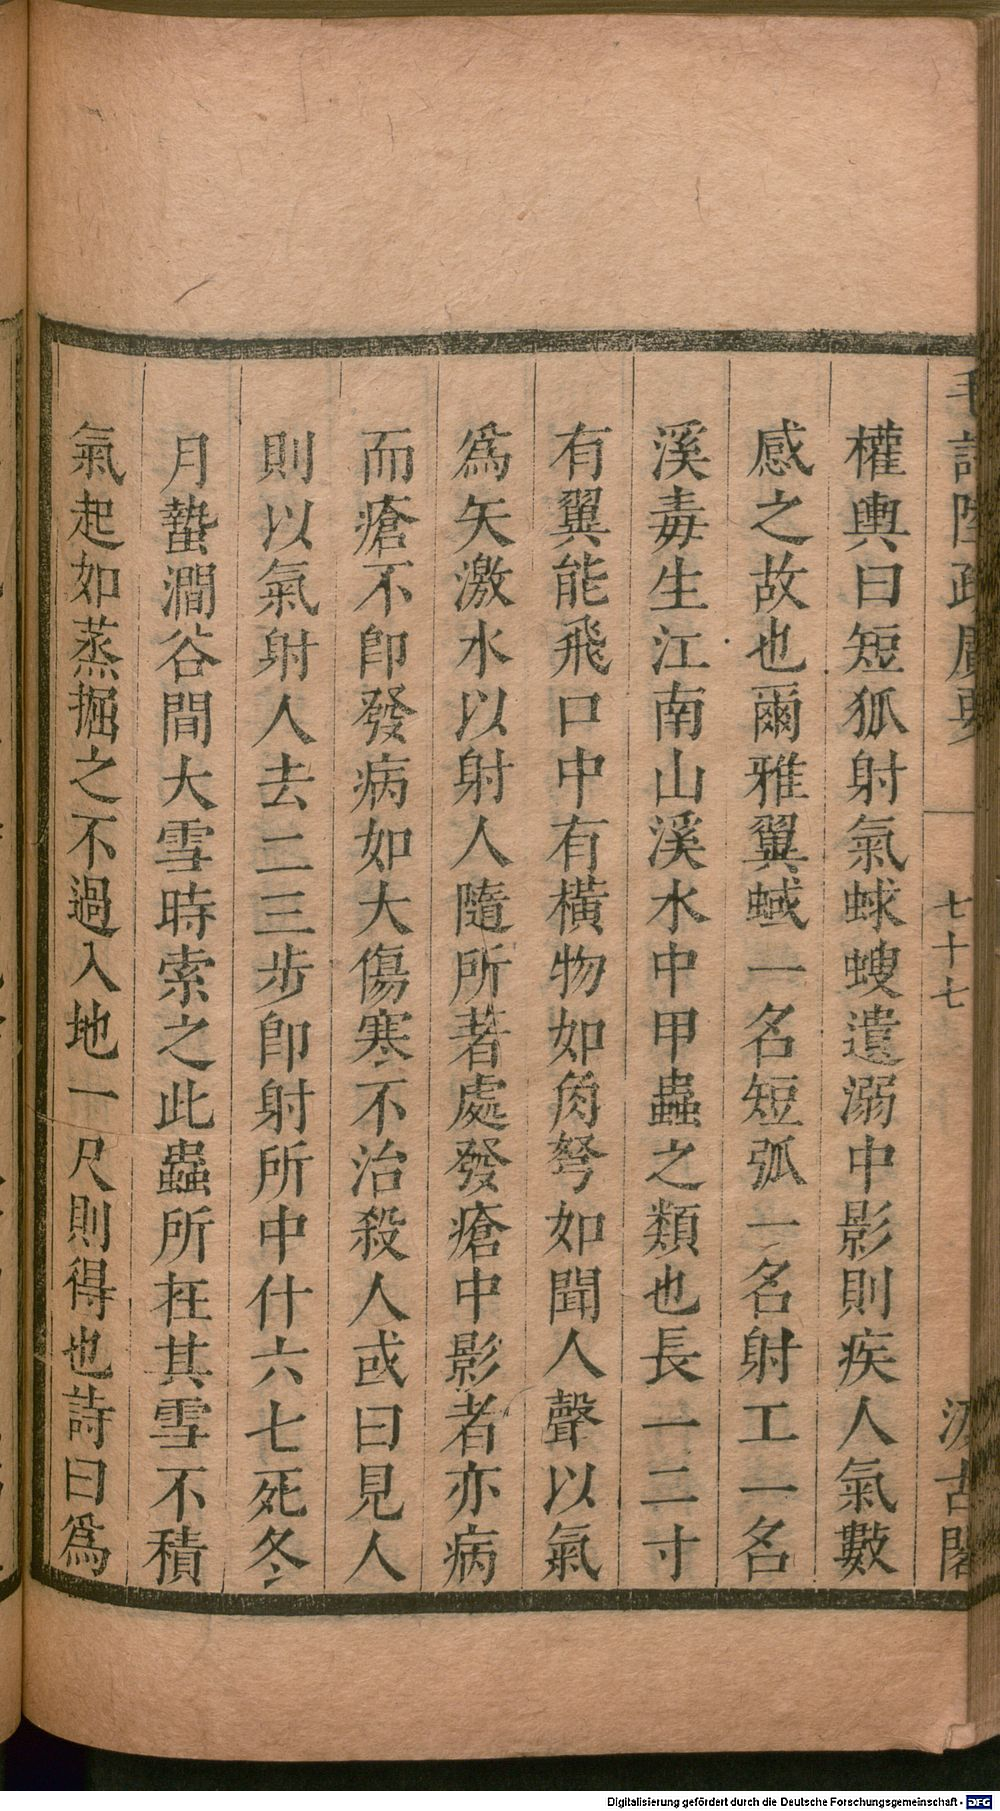 毛詩陸疏廣要
七十七
汲古閣
權輿曰短狐射氣蛷螋遺溺中影則疾人氣數
感之故也爾雅翼蜮一名短弧一名射工一名
溪毒生江南山溪水中甲蟲之類也長一二寸
有翼能飛口中有橫物如角弩如聞人聲以氣
爲矢激水以射人隨所著處發瘡中影者亦病
而瘡不卽發病如大傷寒不治殺人或曰見人
則以氣射人去二三步卽射所中什六七死冬
月蟄澗谷間大雪時索之此蟲所在其雪不積
氣起如蒸掘之不過入地一尺則得也詩曰爲
Digitalisierung gefördert durch die Deutsche Forschungsgemeinschaft - DFG